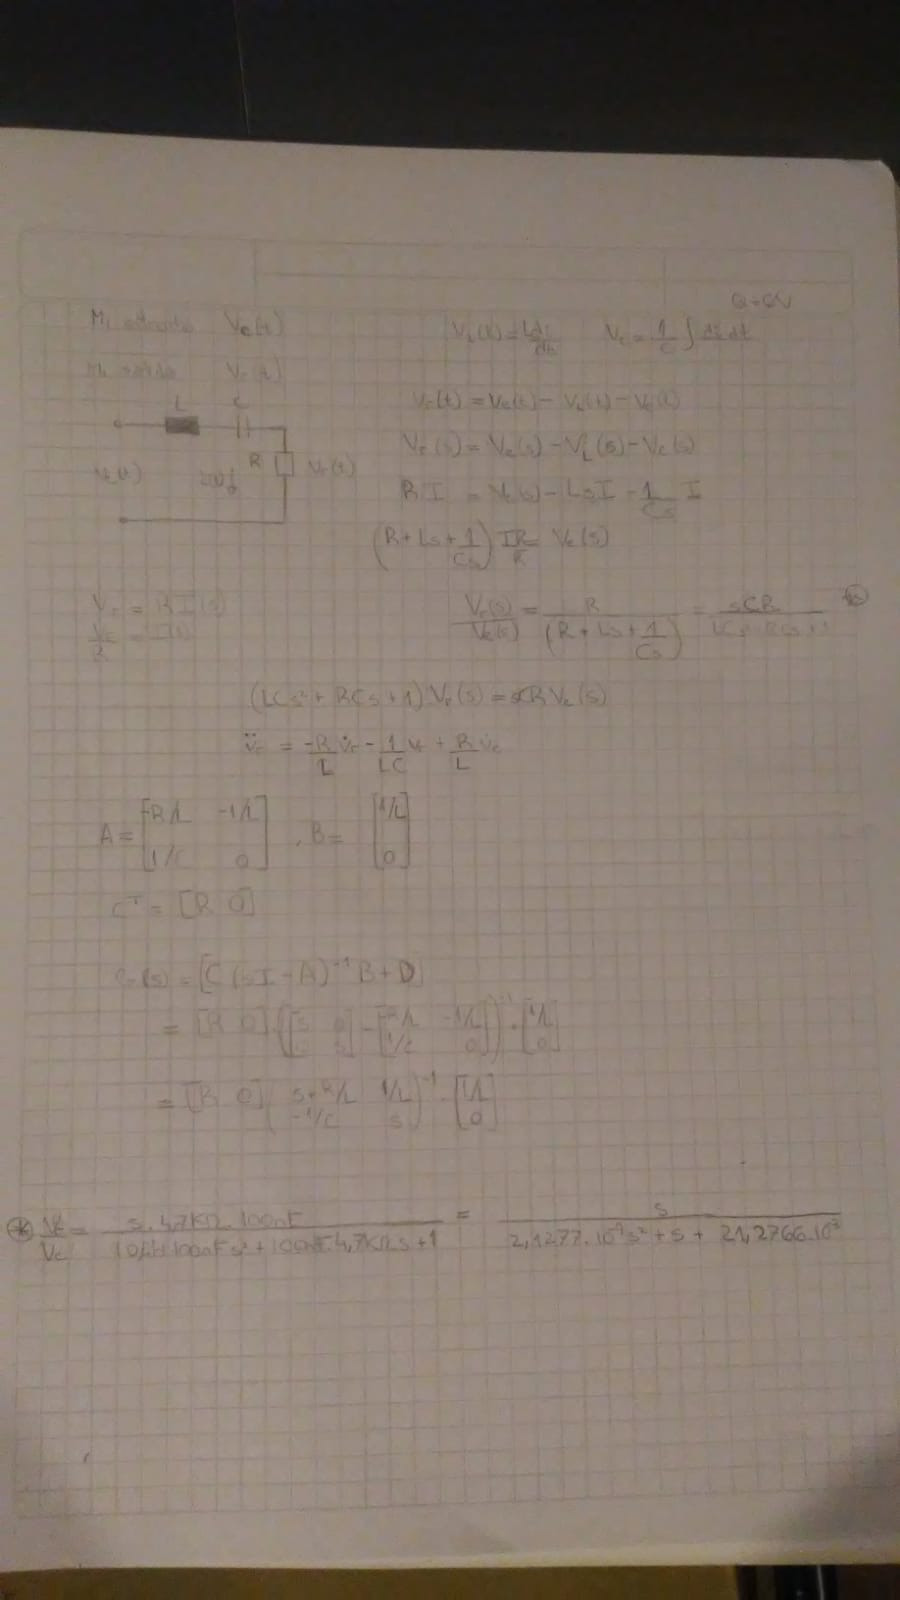 Q=CV
Mi entrada Ve(t)
V_L(t)=L di/dt    V_c = 1/C ∫ di dt
Mi salida Vr(t)
L C
Vr(t) = Ve(t) - V_L(t) - Vc(t)
Vr(s) = Ve(s) - V_L(s) - Vc(s)
R Vr(t)
Ve(t)
RI = Ve(s) - LsI - 1/Cs I
(R + Ls + 1/Cs) IR/R = Ve(s)
Vr = RI(s)
Vr/R = I(s)
Vr(s)/Ve(s) = R/(R + Ls + 1/Cs) = sCR/(LCs² + RCs + 1) *
(LCs² + RCs + 1) Vr(s) = sCR Ve(s)
v̈r = -R/L v̇r - 1/LC vr + R/L v̇e
A = [-R/L -1/L; 1/C 0], B = [1/L; 0]
Cᵀ = [R 0]
G(s) = [C (sI - A)⁻¹ B + D]
= [R 0] ([s 0; 0 s] - [-R/L -1/L; 1/C 0])⁻¹ · [1/L; 0]
= [R 0] (s+R/L 1/L; -1/C s)⁻¹ · [1/L; 0]
* Vr/Ve = s. 4,7KΩ 100nF / 100nF s² + 100nF. 4,7KΩ s + 1 = s / 2,1277.10⁻⁹ s² + s + 21,2766.10³